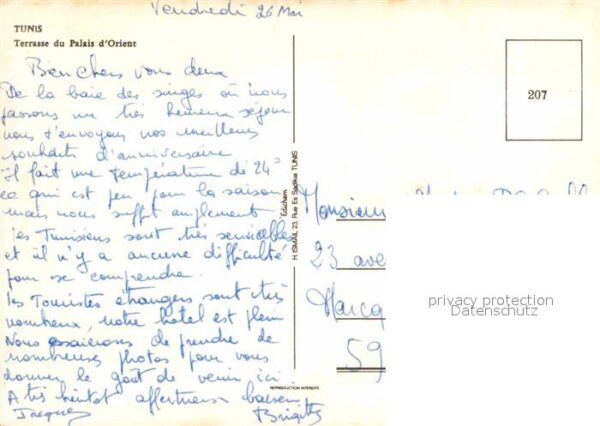 Vendredi 26 Mai
TUNIS
Terrasse du Palais d'Orient
207
Bien chers vous deux
De la baie des singes où nous
passons un très heureux séjour
nous t'envoyons nos meilleurs
souhaits d'anniversaire
il fait une température de 24°
ce qui est peu pour la saison
mais nous suffit amplement
les Tunisiens sont très serviables
et il n'y a aucune difficulté
pour se comprendre.
les Touristes étrangers sont très
nombreux, notre hôtel est plein
Nous essaierons de prendre de
nombreuses photos pour vous
donner le goût de venir ici
A très bientôt affectueux baisers
Jacques
Brigitte
Edichem
H. ISMAIL 23, Rue Es Sadikia TUNIS
REPRODUCTION INTERDITE
Monsieur
23 ave
Marcq
59
privacy protection
Datenschutz